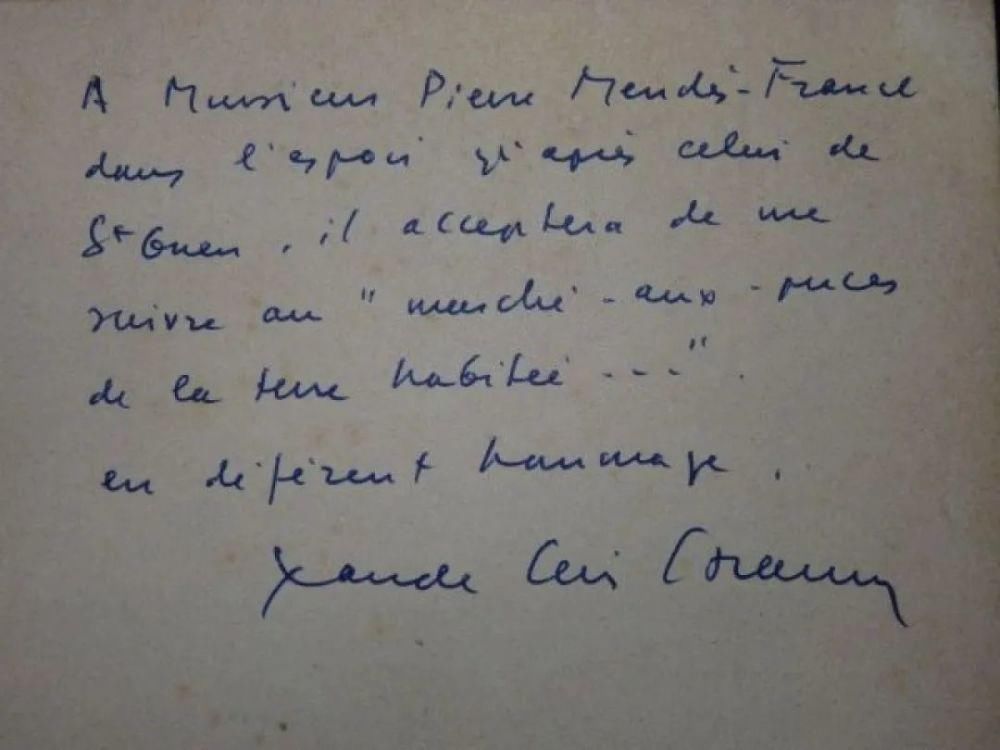 A Monsieur Pierre Mendès-France
dans l'espoir qu'après celui de
St Ouen, il acceptera de me
suivre au "marché-aux-puces
de la terre habitée ...".
en déférent hommage.